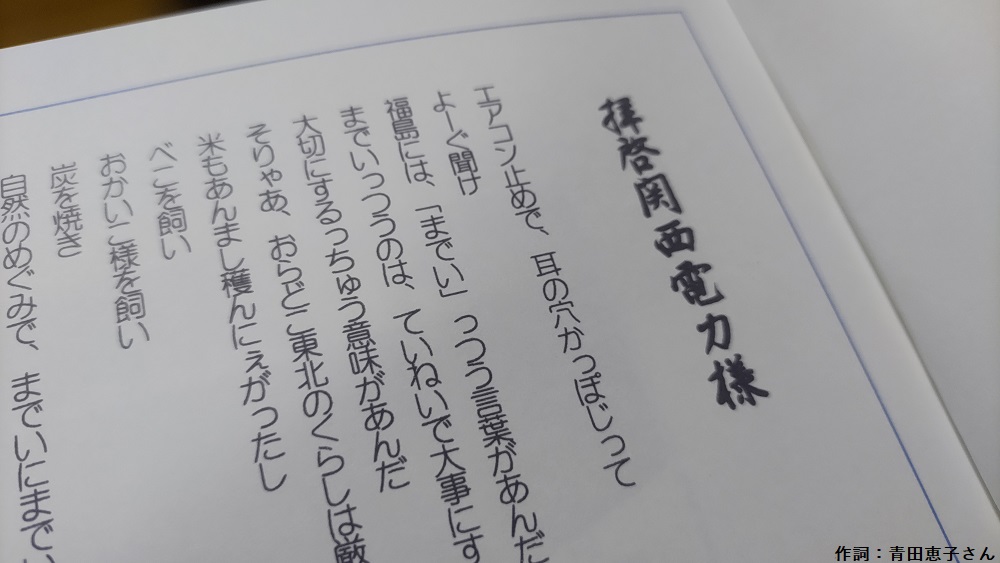 拝啓関西電力様
エアコン止めで、耳の穴かっぽじって
よーぐ聞け
福島には、「までい」っつう言葉があんだ
までいっつうのは、ていねいで大事にす
大切にするっちゅう意味があんだ
そりゃあ、おらどこ東北のくらしは厳
米もあんまし穫んにぇがったし
べこを飼い
おかいこ様を飼い
炭を焼き
自然のめぐみで、までいにまでい
作詞：青田恵子さん